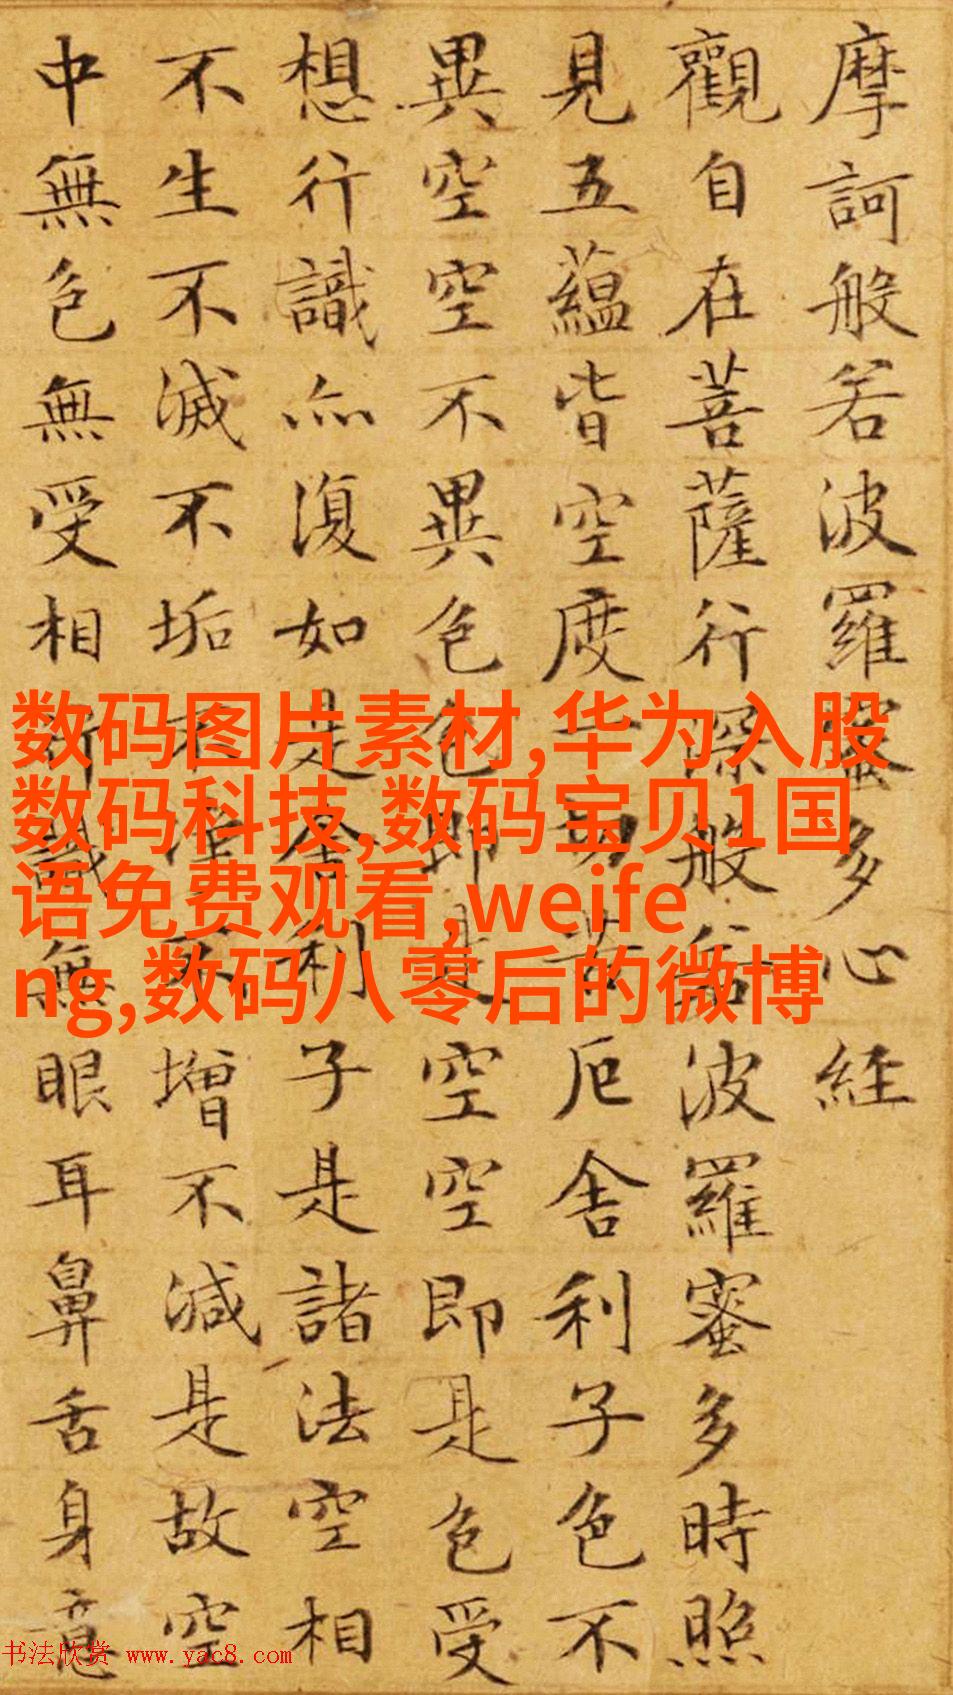 摩訶般若波羅蜜多心經
觀自在菩薩行深般若波羅蜜多時照
見五蘊皆空度一切苦厄舍利子色不
異空空不異色色即是空空即是色受
想行識亦復如是舍利子是諸法空相
不生不滅不垢不淨不增不減是故空
中無色無受相行識無眼耳鼻舌身意
数码图片素材,华为入股
数码科技,数码宝贝1国
语免费观看,weife
ng,数码八零后的微博
书法欣赏 www.yac8.com